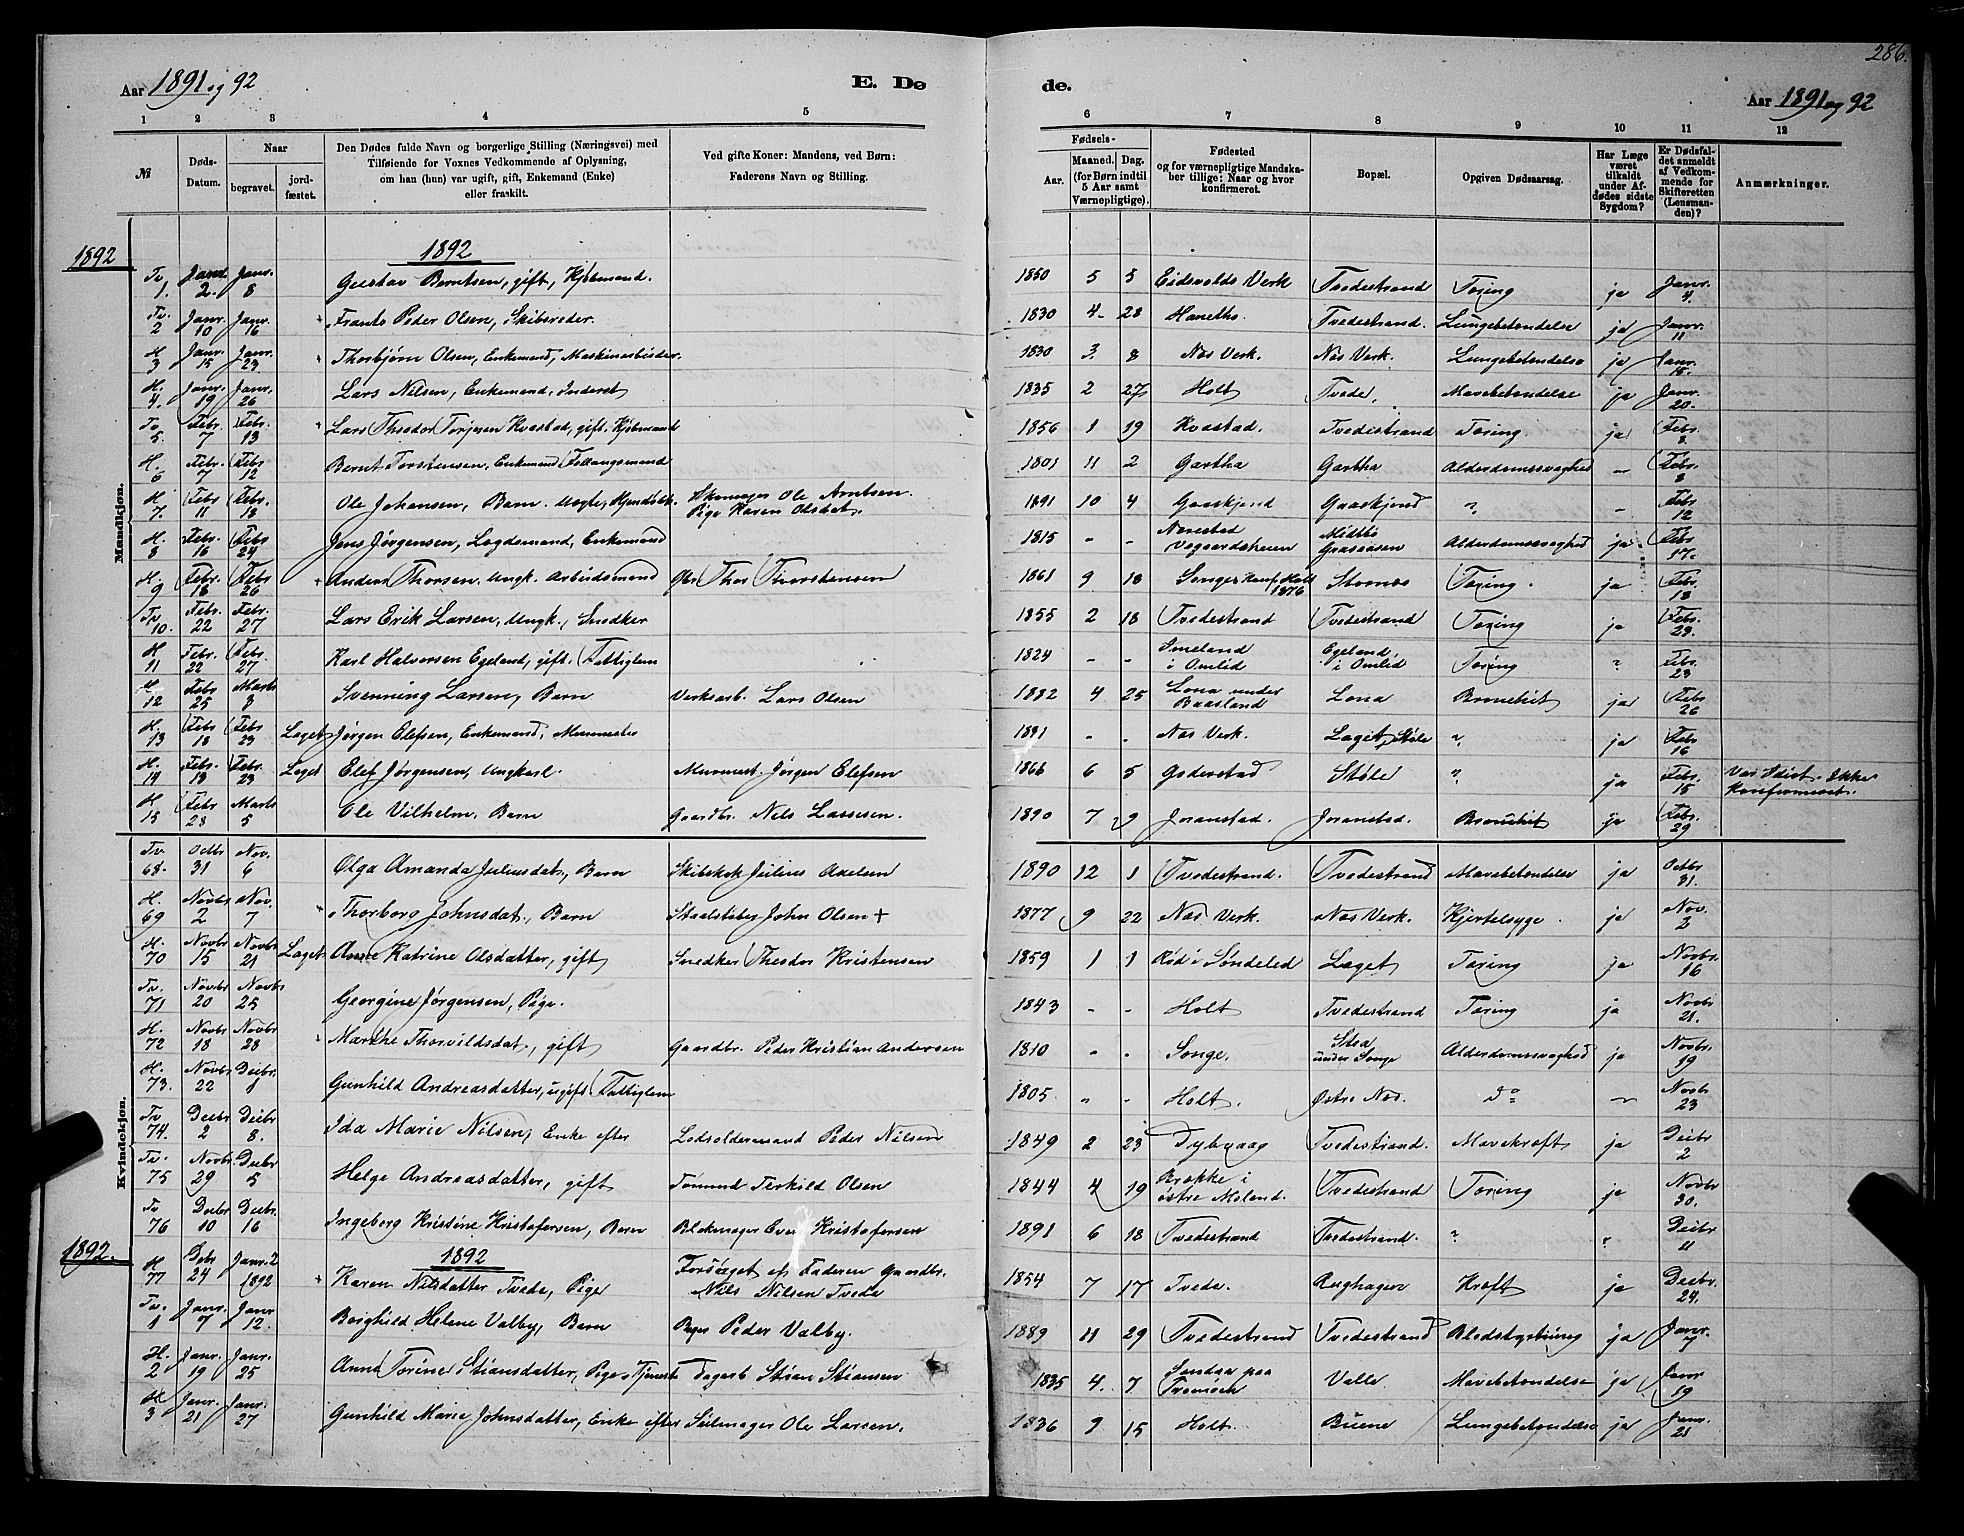 286.
Aar 1891 og 92 E. Dø de. Aar 1891 og 92
1 2 3 4 5 6 7 8 9 10 11 12
№
Døds-Datum.
Naar
begravet.
jord-fæstet.
Den Dødes fulde Navn og borgerlige Stilling (Næringsvei) med
Tilføiende for Voxnes Vedkommende af Oplysning,
om han (hun) var ugift, gift, Enkemand (Enke)
eller fraskilt.
Ved gifte Koner: Mandens, ved Børn:
Faderens Navn og Stilling.
Fødsels-
Aar.
Maaned. Dag.
(for Børn indtil
5 Aar samt
Værnepligtige).
Fødested
og for værnepligtige Mandska-
ber tillige: Naar og hvor
konfirmeret.
Bopæl.
Opgiven Dødsaarsag.
Har Læge
været
tilkaldt
under Af-
dødes sidste
Sygdom?
Er Dødsfal-
det anmeldt
af Vedkom-
mende for
Skifteretten
(Lensman-
den)?
Anmærkninger.
Mandkjøn.
1892 1892
Tv. 1. Janr. 2. Janr. 8 Gustav Berntsen, gift, Kjøbmand. 1850 5 5 Eidsvolds Verk Tvedestrand Tæring ja Janr. 4.
Tv. 2 Janr. 10 Janr. 16 Frants Peder Olsen, Skibsreder. 1830 4 28 Tvedestrand. Lungebetændelse ja Janr. 11
H. 3 Janr. 15 Janr. 23 Thorbjørn Olsen, Enkemand, Maskinarbeider. 1830 3 8 Næs Verk. Næs Verk. Lungebetændelse ja Janr. 15.
H. 4. Janr. 19 Janr. 26 Lars Nilsen, Enkemand, Inderst 1835 2 27 Holt Tvede. Mavebetændelse ja Janr. 20.
Tv. 5 Febr. 7 Febr. 13 Lars Theodor Torjusen Kvastad, gift. Kjøbmand 1856 1 19 Kvastad. Tvedestrand Tæring. ja Febr. 8.
H. 6 Febr. 7 Febr 12 Bernt Torstensen, Enkemand Føllaugsmand 1801 11 2 Gartha Gartha Alderdomssvaghed – Febr. 8
H 7. Febr 11 Febr. 18 Ole Johansen, Barn Skomager Ole Arntsen. Pige Karen Olsdat. 1891 10 4 Gaaskjend Gaaskjend " – Febr 12
H. 8 Febr. 16 Febr 24 Jens Jørgensen, Lægdemand, Enkemand 1815 - - Navestad Vegaardsheien Midtbø Graaaasen Alderdomssvaghed ja Febr 17.
H. 9 Febr. 18 Febr 26 Anders Thorsen, Ungk. Arbeidsmand Gbr Thor Thorstensen 1861 9 18 Songe Konf. Holt 1876 Stornæs Tæring. ja Febr. 18
Tv 10. Febr. 22 Febr. 27 Lars Erik Larsen, Ungk., Snedker 1855 2 18 Tvedestrand Tvedestrand Tæring ja Febr. 23.
H 11 Febr. 22 Febr. 27 Karl Halvorsen Egeland, gift. Fattiglem 1824 - - Smeland i Omlid Egeland, i Omlid Tæring " Febr 23
H 12 Febr 25 Marts 3 Svenning Larsen, Barn Verksarb. Lars Olsen 1882 4 25 Lona under Baasland Lona Bronchit ja Febr 26
H. 13 Febr 18 Febr. 23 Laget Jørgen Elefsen, Enkemand, Murmester 1831 - - Næs Verk. Laget, Støle " ja Febr 16
H. 14 Febr. 13 Febr. 23 Laget Elef Jørgensen, Ungkarl. Murmest. Jørgen Elefsen 1866 6 5 Goderstad Støle " ja Febr. 15 Var Idiot. Ikke Konfirmeret.
H 15 Febr 28 Marts 5 Ole Vilhelm, Barn Gaardbr. Nils Lassesen. 1890 7 9 Joranstad. Joranstad. Bronchit ja Febr. 29
Kvindekjøn.
Tv. 68. Octbr 31 Nov. 6 Olga Amanda Juliusdat., Barn Skibskok Julius Axelsen 1890 12 1 Tvedestrand. Tvedestrand Mavebetændelse ja Octbr 31.
H. 69 Novbr 2 Nov. 7 Thorborg Johnsdat., Barn Staalstøber John Olsen + 1877 9 22 Næs Verk. Næs Verk. Kjertelsyge. ja Nov. 2
H. 70 Novbr 15 Novbr 21 Laget Anne Katrine Olsdatter, gift Snedker Theodor Kristensen 1859 1 1 Rød i Søndeled Laget Tæring ja Novbr. 16
Tv. 71 Novbr 20 Novbr 25 Georgine Jørgensen, Pige. 1843 - - Holt Tvedestrand Tæring ja Novbr 21.
H. 72 Novbr 18 Novbr. 28 Marthe Thorvildsdat., gift Gaardbr. Peder Kristian Andersen 1810 " - Songe. Stea under Songe Alderdomssvaghed ja Novbr. 19
H. 73. Novbr 22 Decbr. 1 Gunhild Andreasdatter, ugift Fattiglem 1805. " - Holt. Østre Næs. do – Novbr 23
Tv 74. Decbr 2 Decbr 8. Ida Marie Nilsen, Enke efter Lodsoldermand Peder Nilsen 1849 2 23 Dybvaag Tvedestrand. Mavekræft ja Decbr 2
Tv. 75 Novbr. 29 Decbr 5 Helge Andreasdatter, gift Tømmerm Terkild Olsen 1844 4 19 Krøkke i østre Moland. Tvedestrand Tæring ja Novbr 30.
Tv 76 Decbr 10 Decbr. 16 Ingeborg Kristine Kristofersen, Barn Blokmager Even Kristofersen 1891 6 18 Tvedestrand Tvedestrand. " " Decbr 11
1892. 1892
H 77 Dcbr 24 Janr. 2 1892 Karen Nilsdatter Tvede, Pige Forsørget af Faderen Gaardbr. Nils Nilsen Tvede 1854 7 17 Tvede. Røghagen Kræft ja Decbr. 24.
Tv. 1 Janr. 7 Janr 12. Borghild Helene Valby, Barn Bager Peder Valby. 1889 11 29 Tvedestrand Tvedestrand Blodstyrtning ja Janr. 7
H. 2 Janr. 19 Janr. 25 Anna Torine Stiansdatter, Pige, Tjeneste Dagarb Stian Stiansen 1835 4. 7 Sandaa paa Tromøen Valle Mavebetændelse ja Janr 19
H 3 Janr. 21 Janr. 27 Gunhild Marie Johnsdatter, Enke efter Seilmager Ole Larsen. 1836 9 15 Holt. Buene Lungebetændelse ja Janr. 21